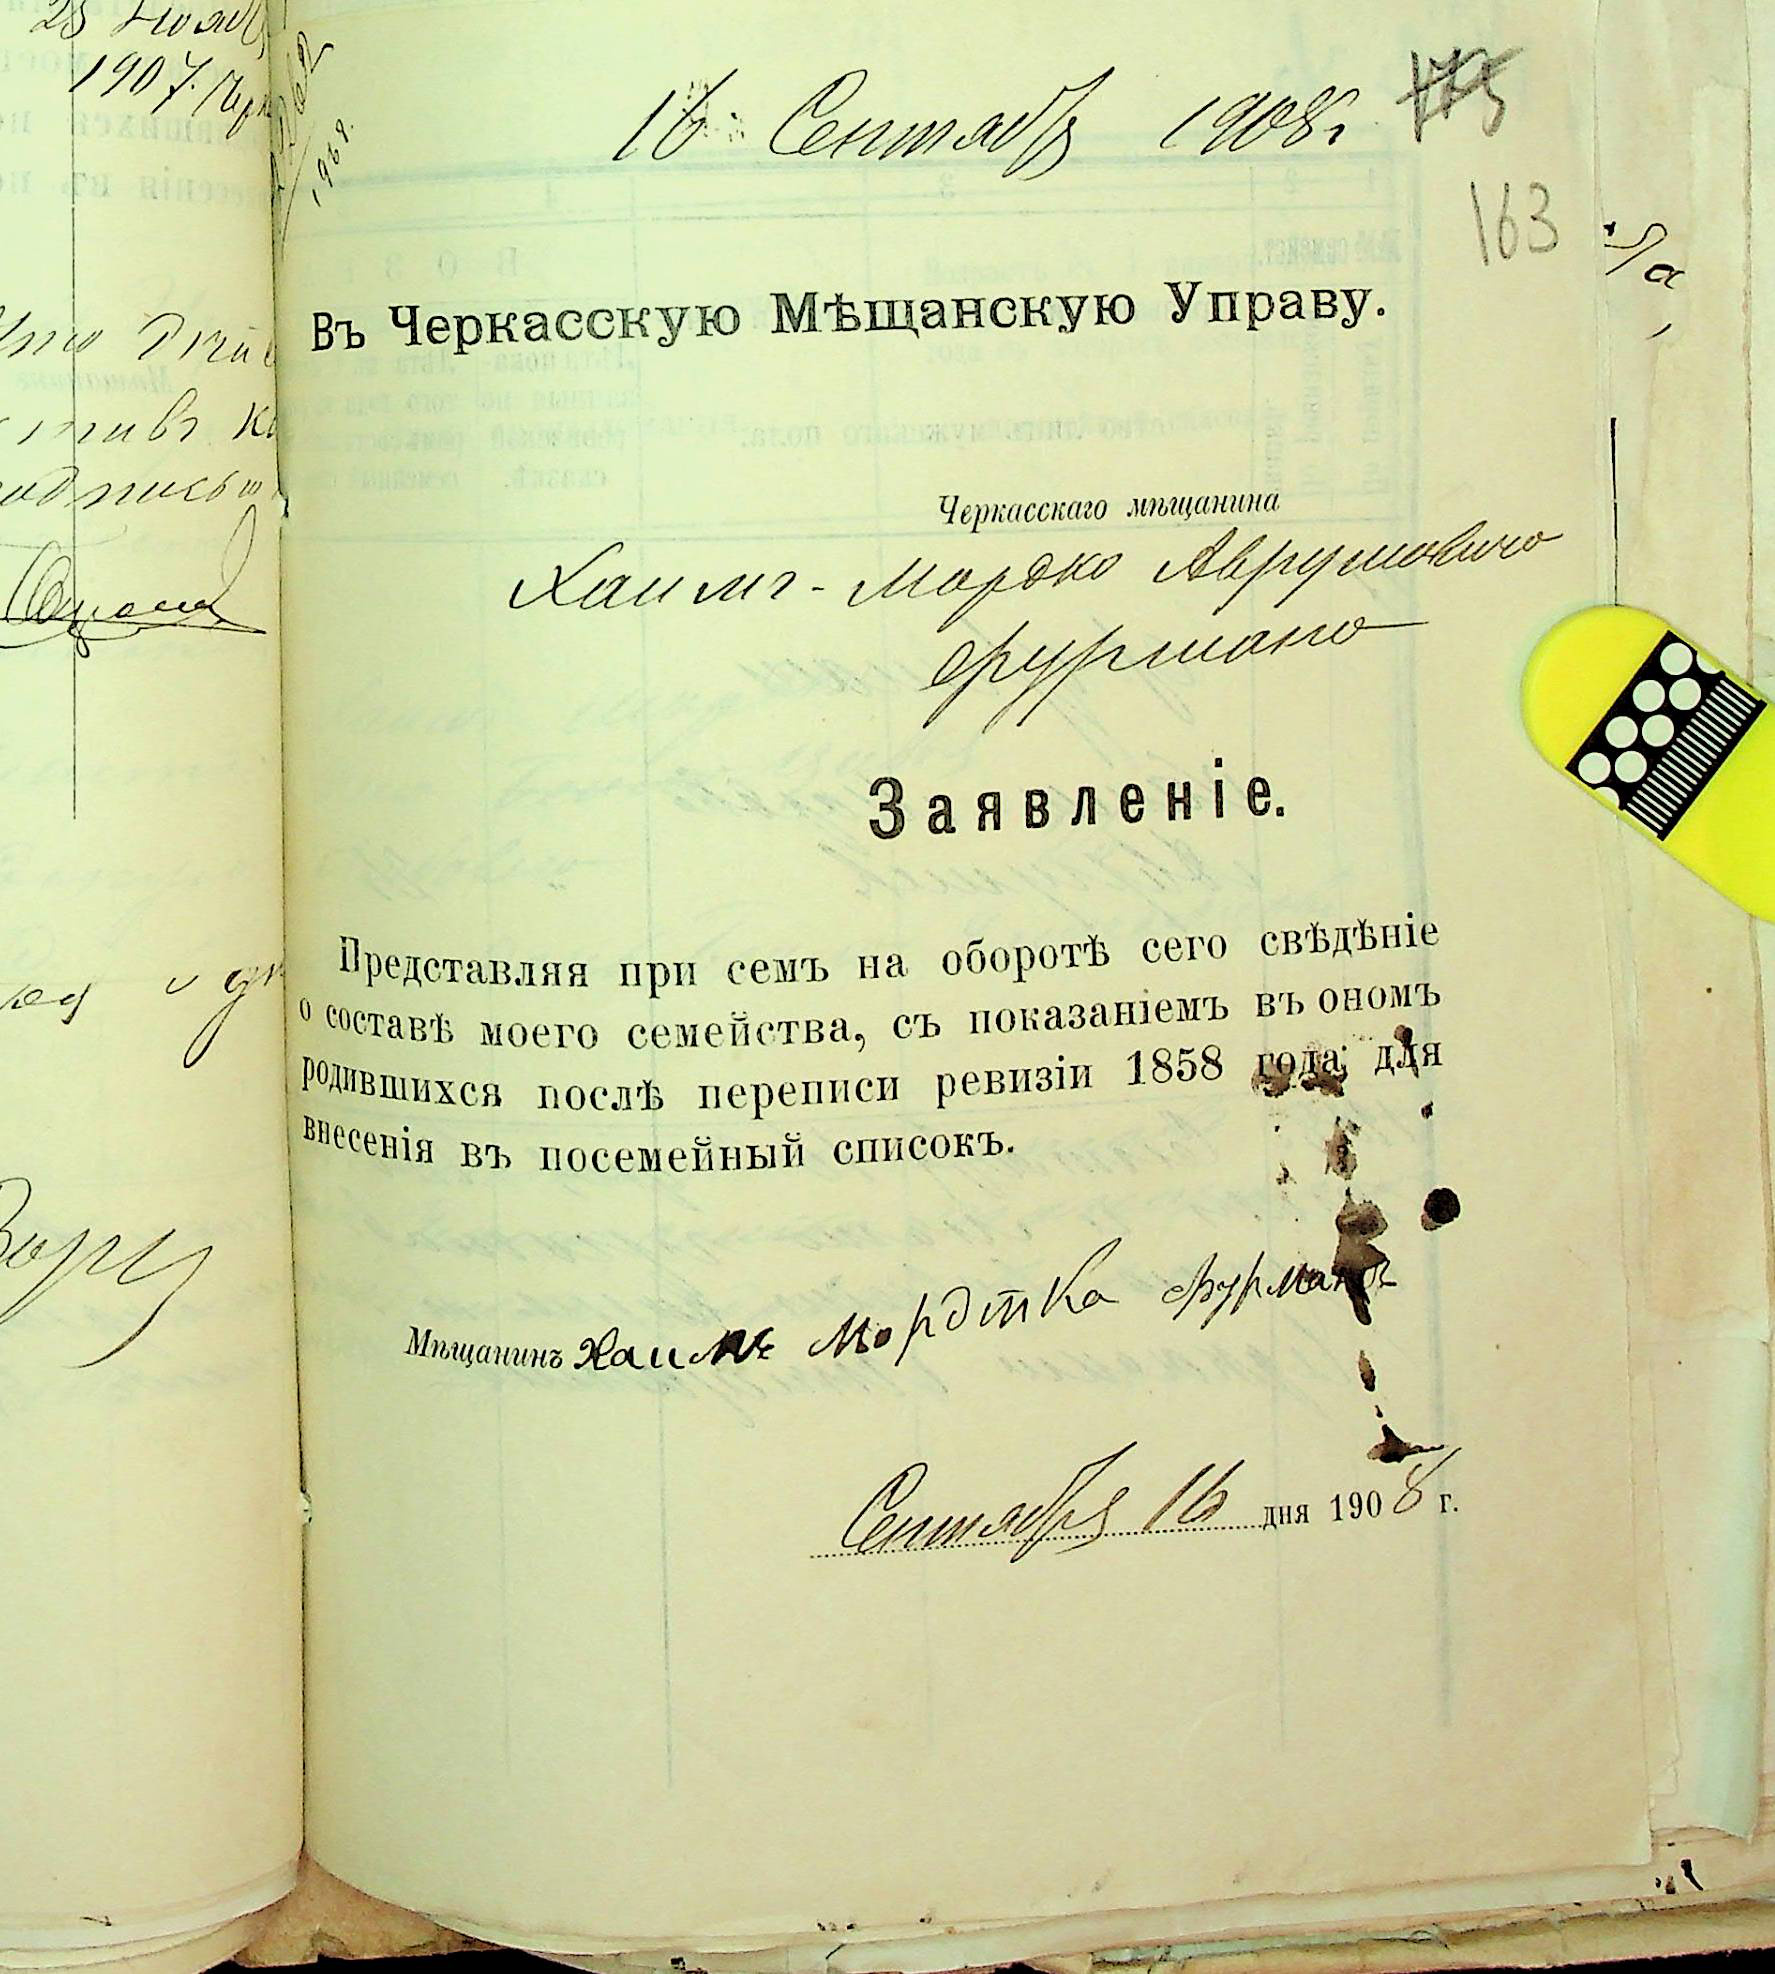 23 Нояб
1907. Чер
16 Сентября 1908 г.
163
Въ Черкасскую Мѣщанскую Управу.
Черкасскаго мѣщанина
Хаимъ-Мордко Аврумовича
Фурмана
Заявленіе.
Представляя при семъ на оборотѣ сего свѣдѣніе
о составѣ моего семейства, съ показаніемъ въ ономъ
родившихся послѣ переписи ревизіи 1858 года; для
внесенія въ посемейный списокъ.
Мѣщанинъ Хаимъ Мордтка Фурманъ
Сентября 16 дня 1908 г.